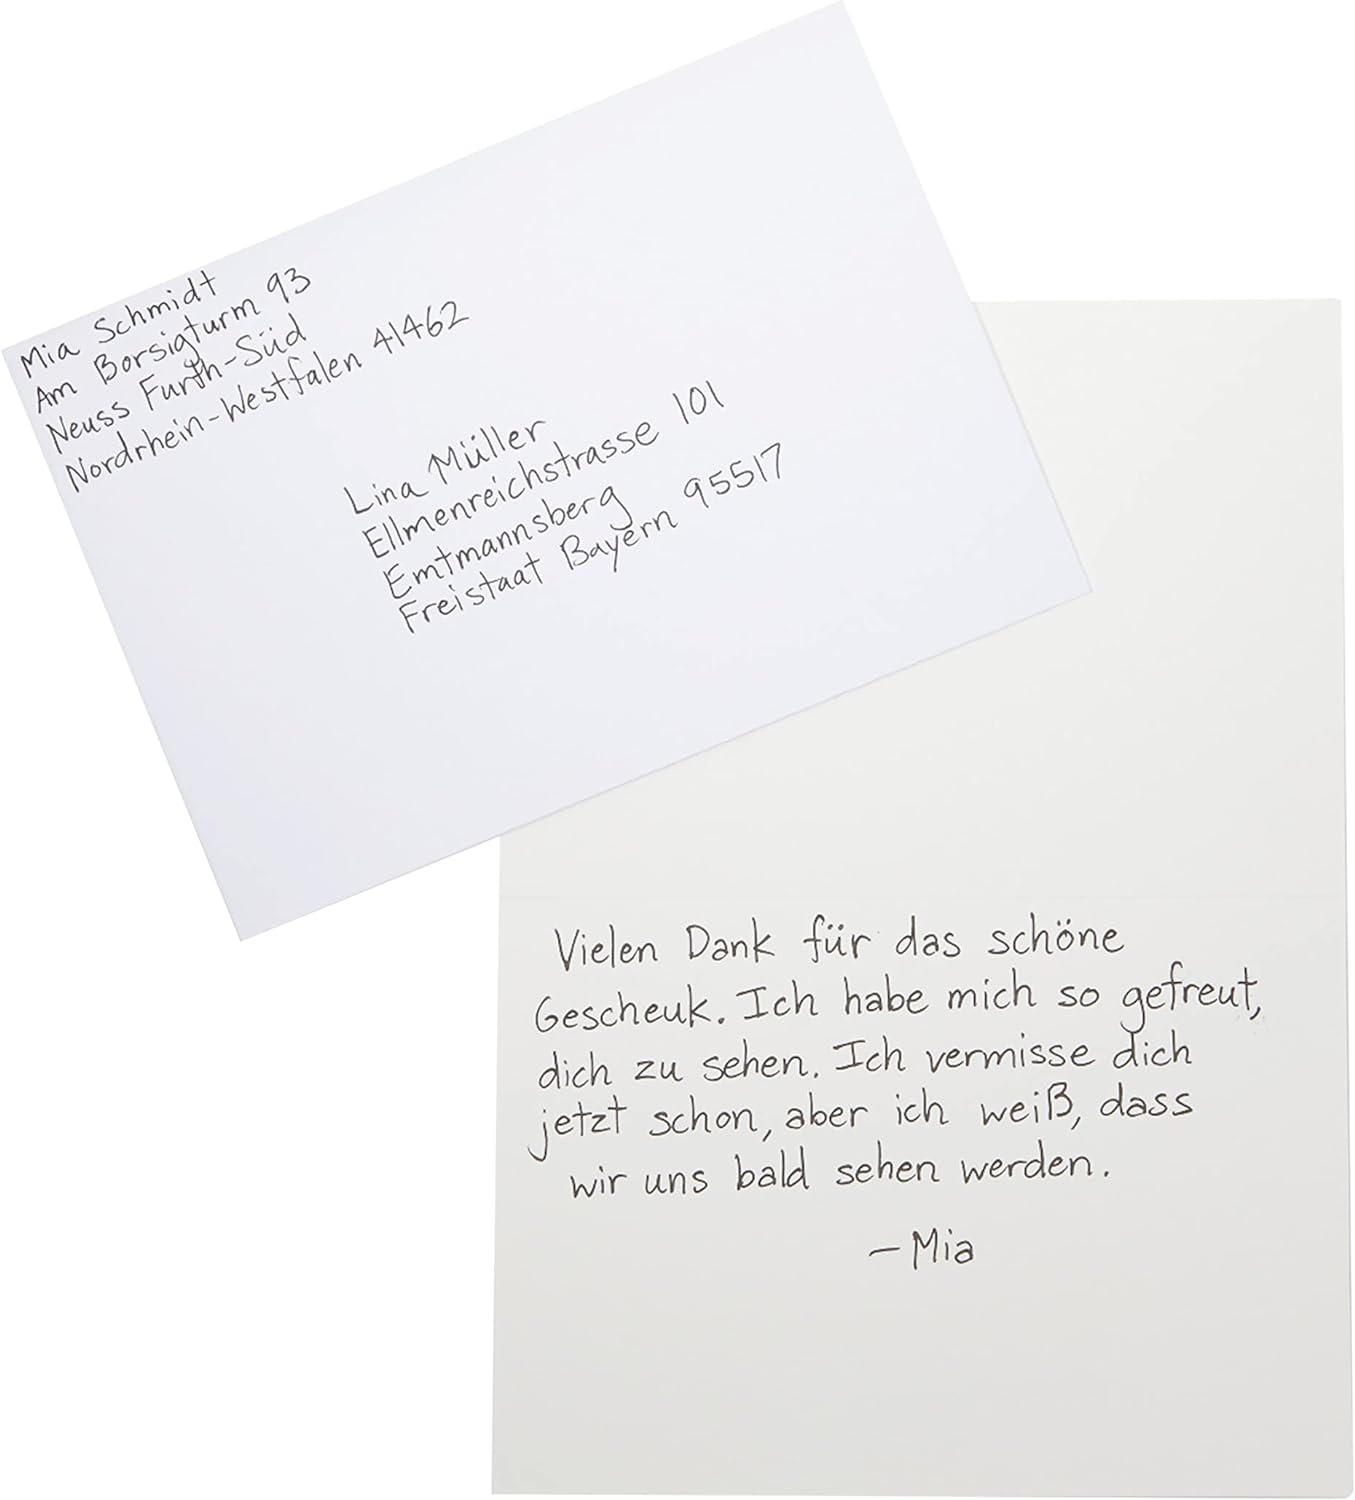 Mia Schmidt
Am Borsigturm 93
Neuss Furth-Süd
Nordrhein-Westfalen 41462
Lina Müller
Ellmenreichstrasse 101
Emtmannsberg
Freistaat Bayern 95517
Vielen Dank für das schöne
Gescheuk. Ich habe mich so gefreut,
dich zu sehen. Ich vermisse dich
jetzt schon, aber ich weiß, dass
wir uns bald sehen werden.
– Mia